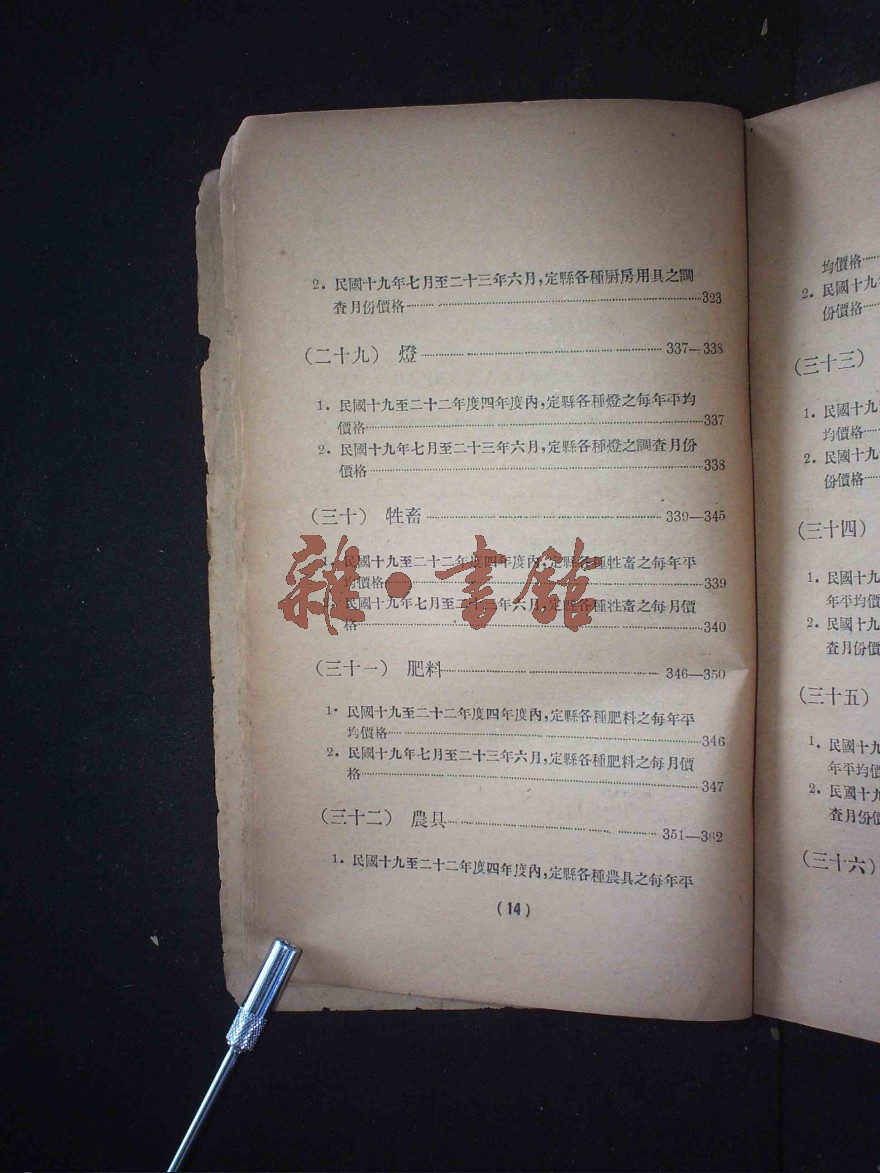 2. 民國十九年七月至二十三年六月,定縣各種厨房用具之調
查月份價格 323
(二十九) 燈 337—338
1. 民國十九至二十二年度四年度內,定縣各種燈之每年平均
價格 337
2. 民國十九年七月至二十三年六月,定縣各種燈之調查月份
價格 338
(三十) 牲畜 339—345
1. 民國十九至二十二年度四年度內,定縣各種牲畜之每年平
均價格 339
民國十九年七月至二十三年六月,定縣各種牲畜之每月價
格 340
雜·書館
(三十一) 肥料 346—350
1. 民國十九至二十二年度四年度內,定縣各種肥料之每年平
均價格 346
2. 民國十九年七月至二十三年六月,定縣各種肥料之每月價
格 347
(三十二) 農具 351—362
1. 民國十九至二十二年度四年度內,定縣各種農具之每年平
(14)
均價格
2. 民國十九年
份價格
(三十三)
1. 民國十九
均價格
2. 民國十九
份價格
(三十四)
1. 民國十九
年平均價
2. 民國十九
查月份價
(三十五)
1. 民國十九
年平均價
2. 民國十九
查月份價
(三十六)